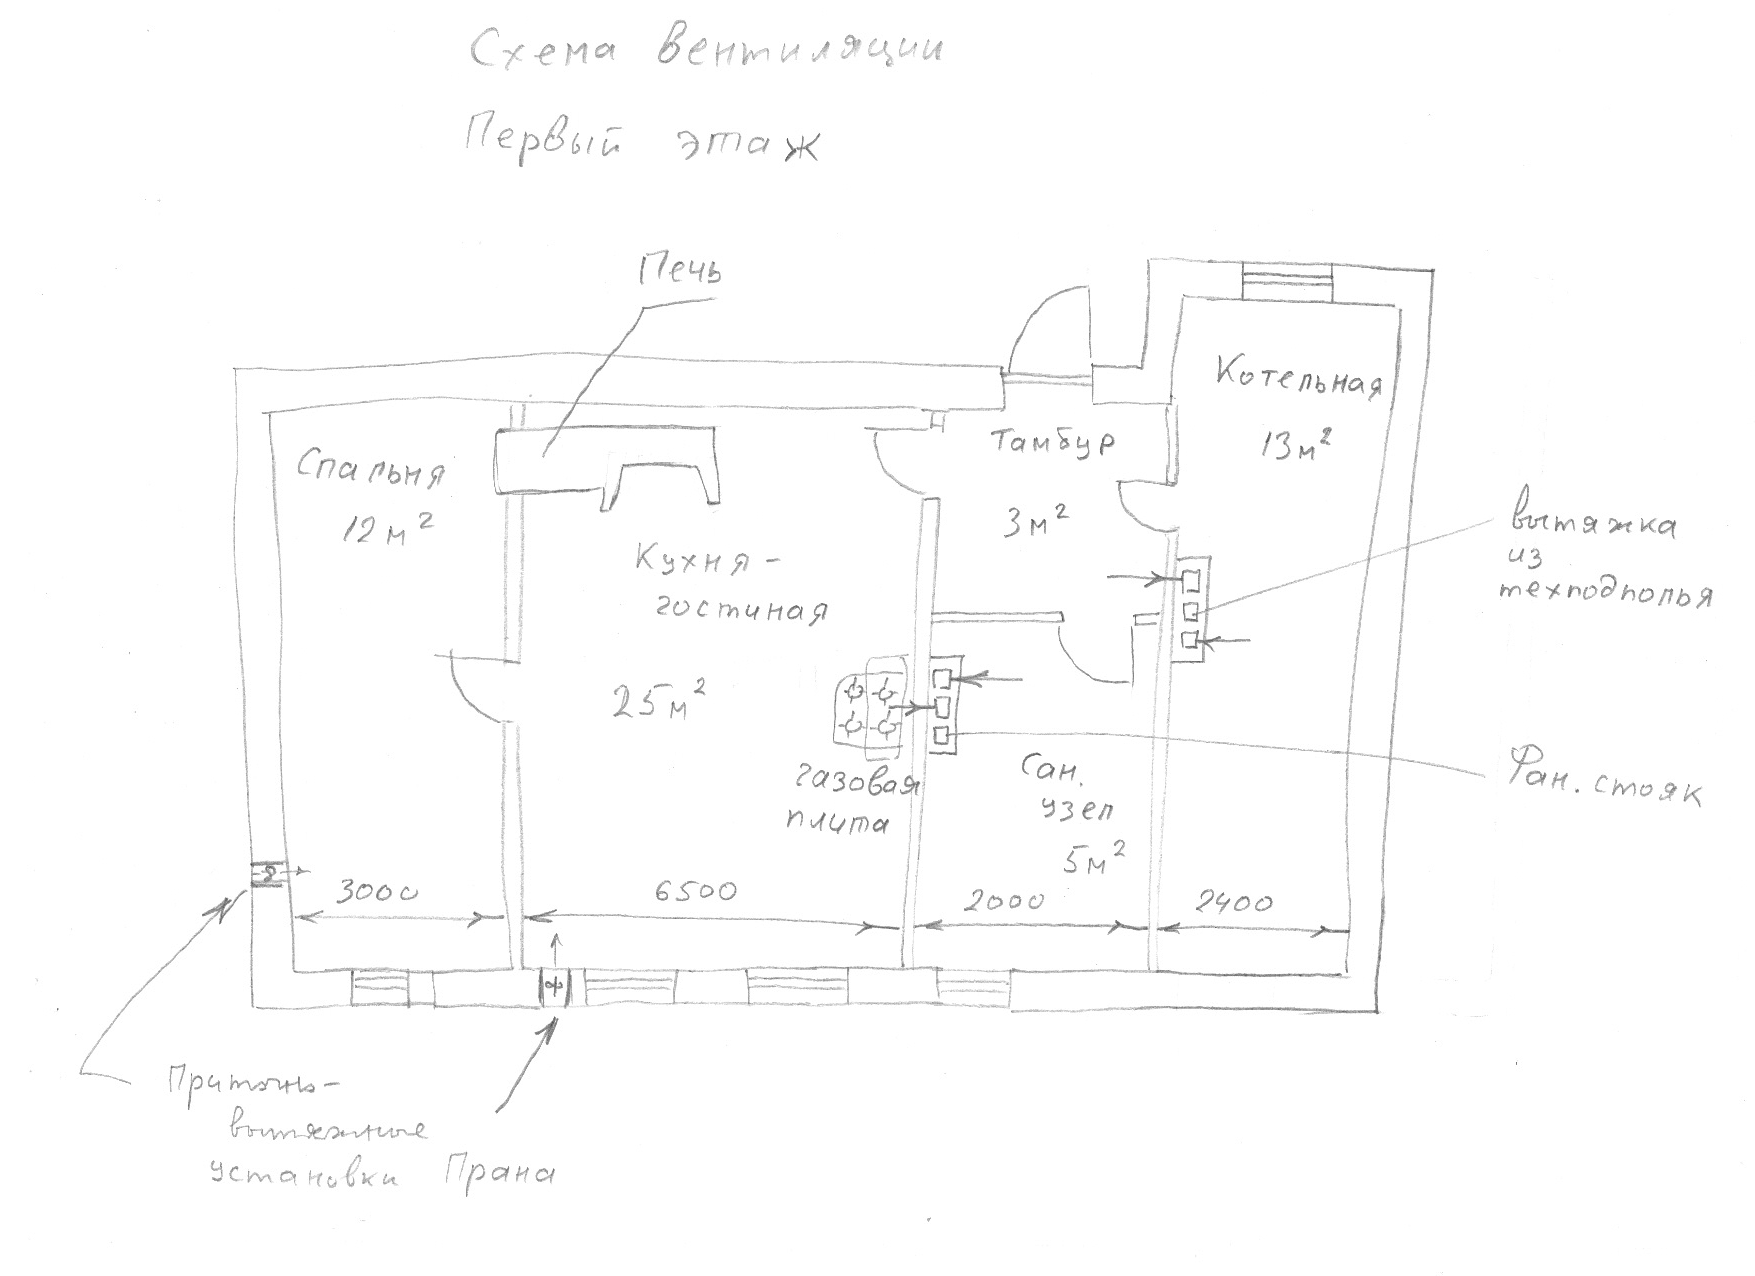 Схема вентиляции
Первый этаж
Печь
Котельная
13 м²
Спальня
12 м²
Тамбур
3 м²
Кухня -
гостиная
25 м²
вытяжка
из
техподполья
газовая
плита
Сан.
узел
5 м²
Фан. стояк
3000
6500
2000
2400
Приточно-
вытяжные
установки Прана